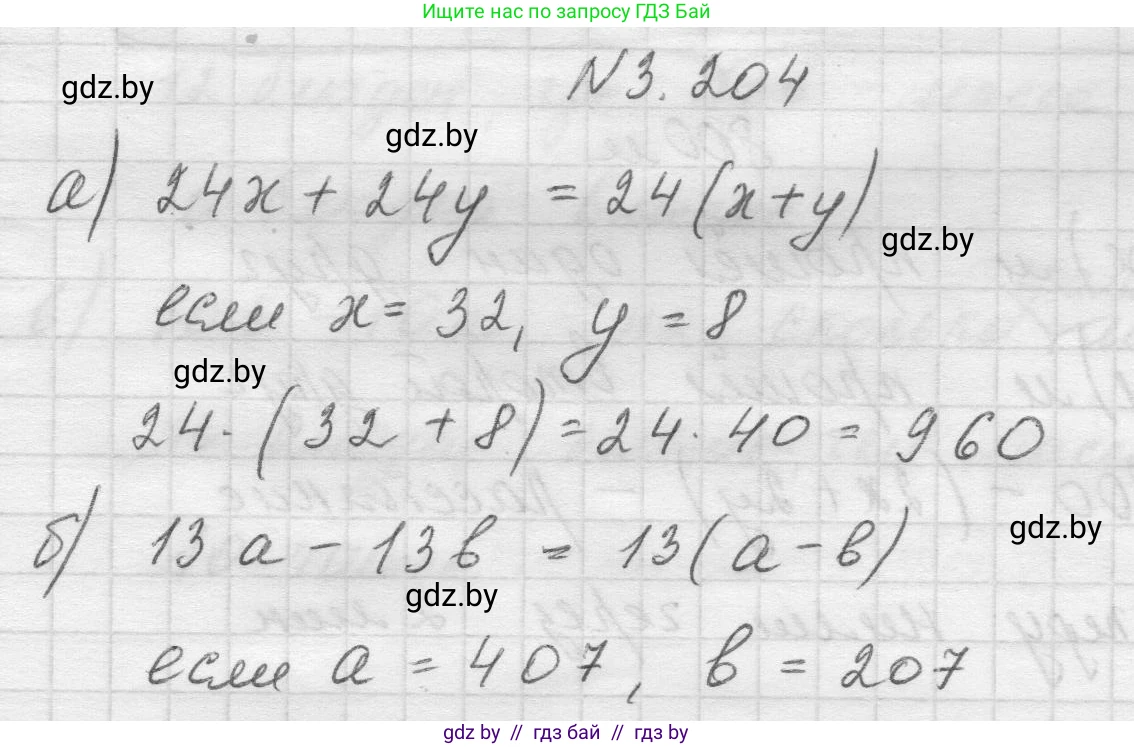 Ищите нас по запросу ГДЗ Бай
N 3. 204
gdz.by
gdz.by
а) 24x + 24y = 24(x+y)
gdz.by
если x = 32, y = 8
gdz.by
24 · (32 + 8) = 24 · 40 = 960
б) 13a - 13в = 13(a-в)
gdz.by
gdz.by
если a = 407, в = 207
gdz by // гдз бай // gdz by